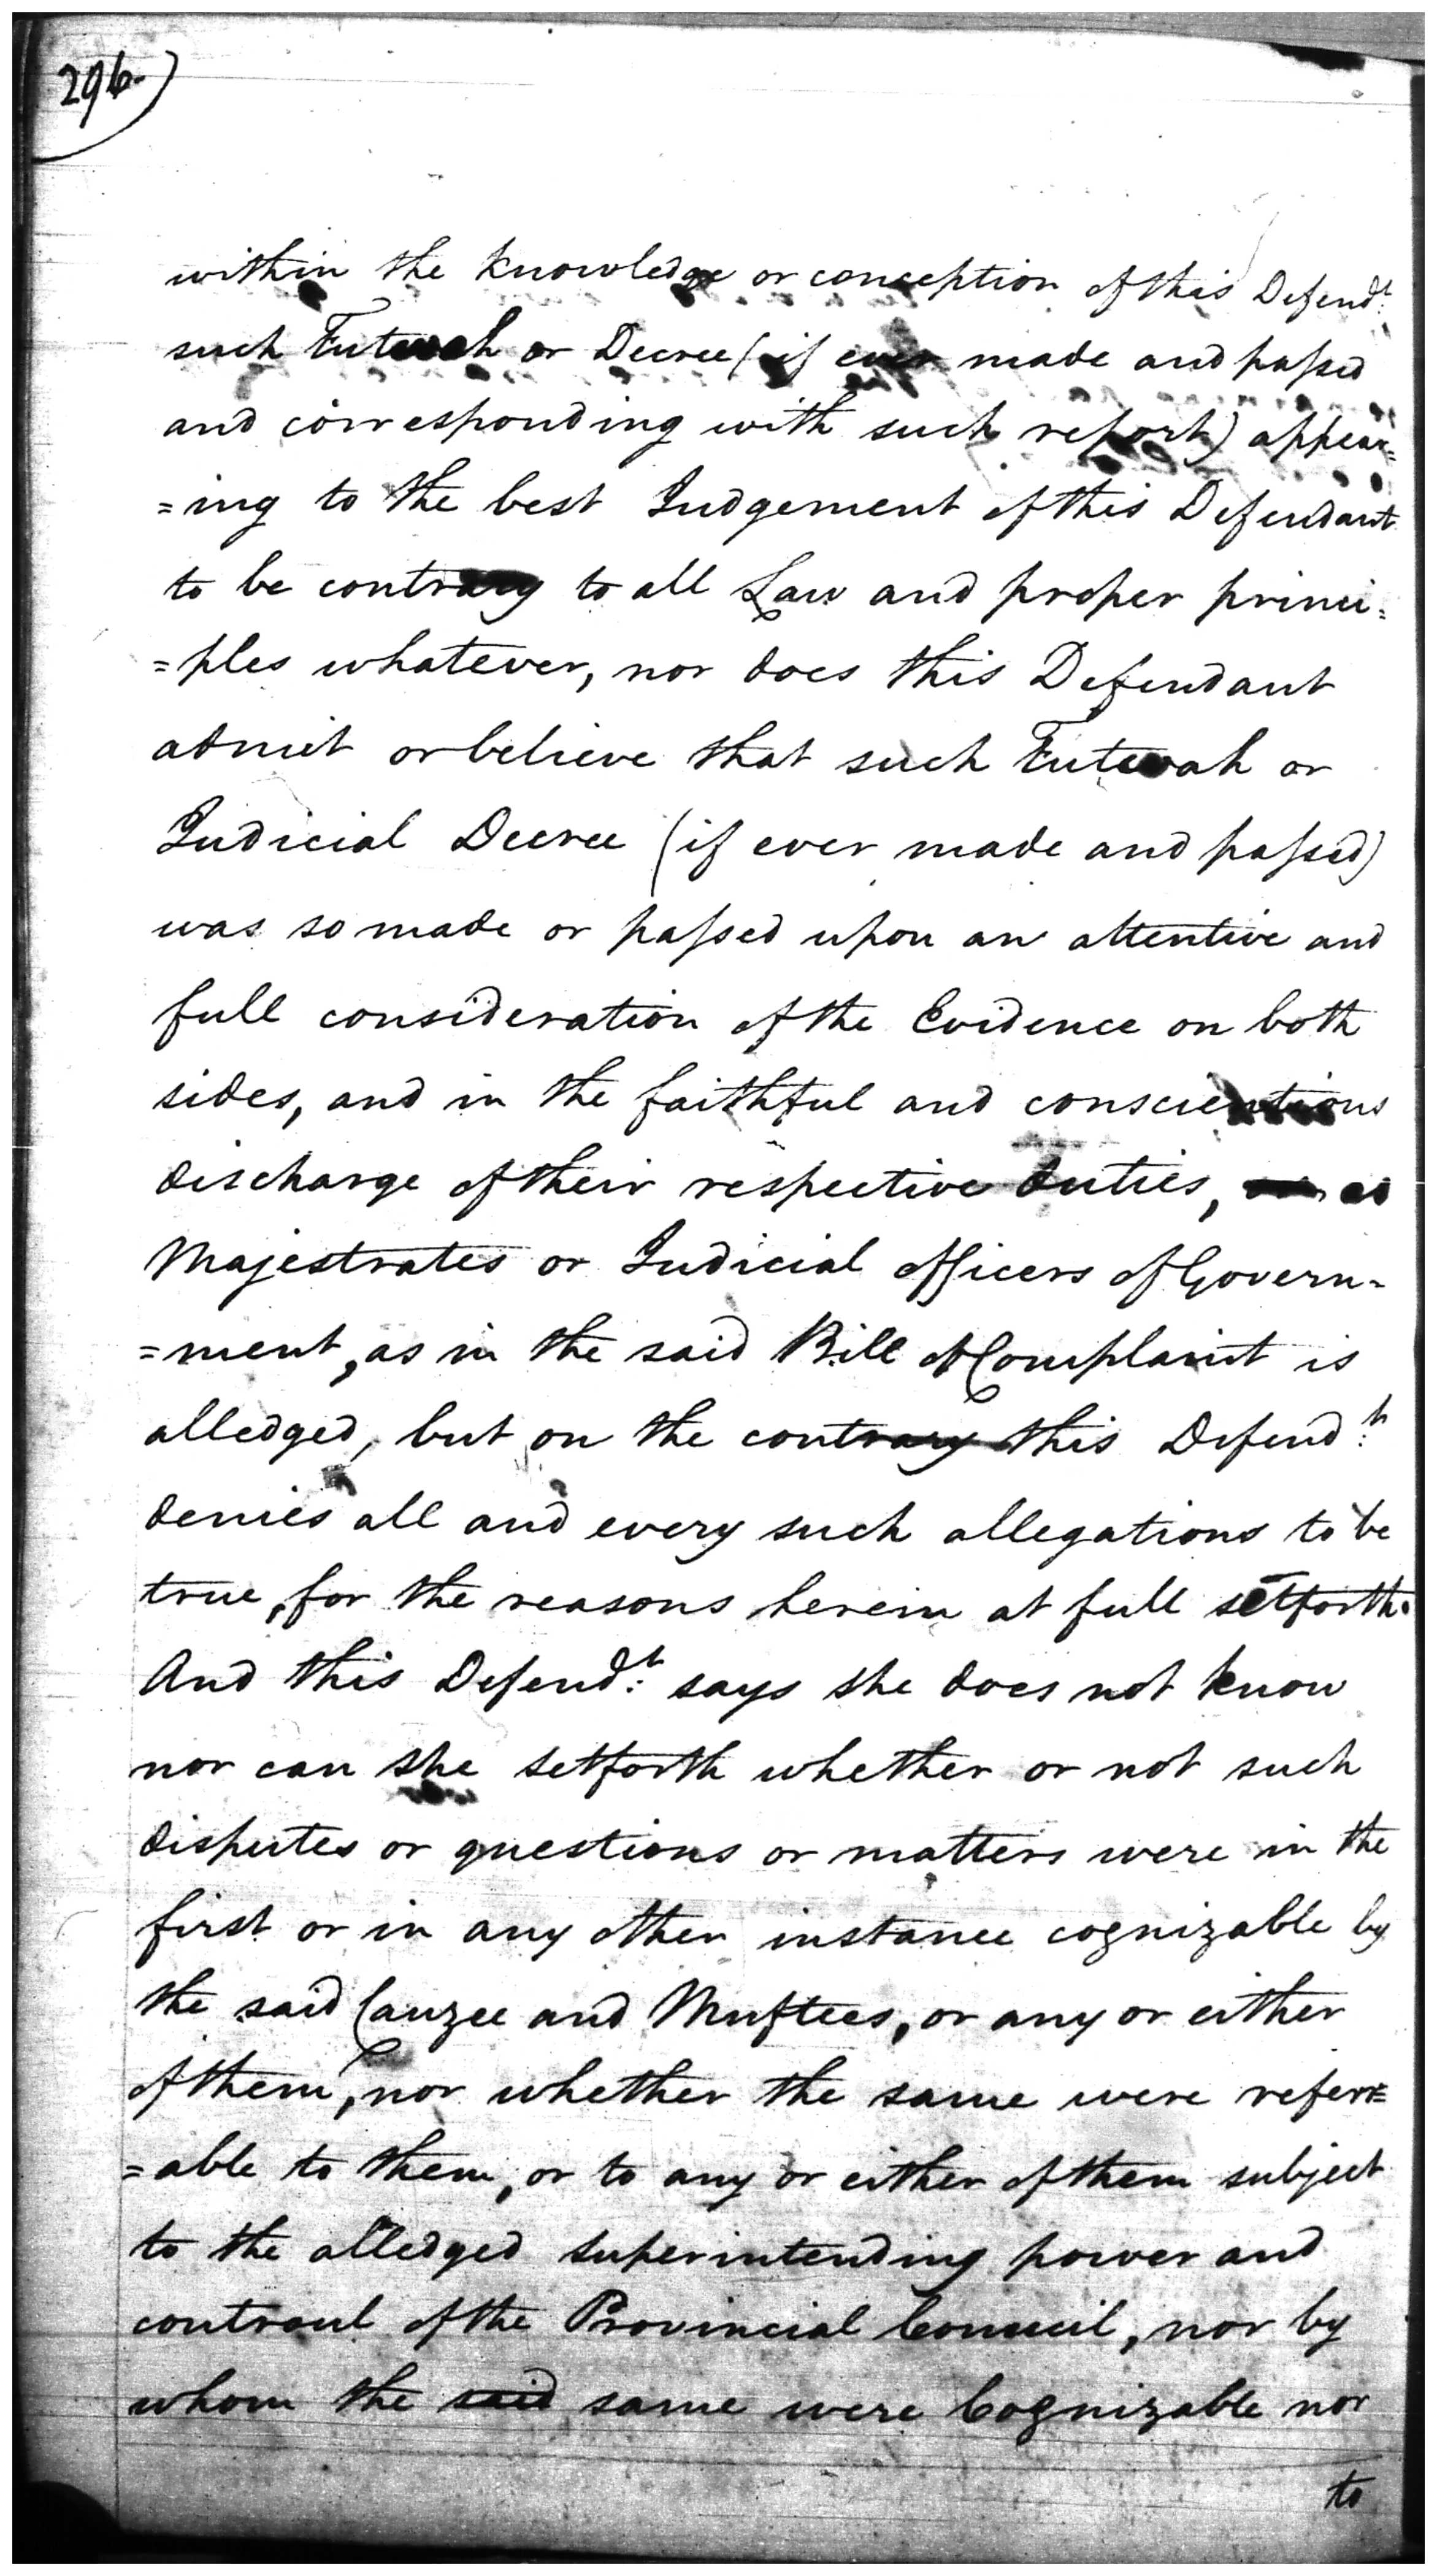 296.
within the knowledge or conception of this Defend.t
such Futwah or Decree (if ever made and passed
and corresponding with such report) appear=
=ing to the best Judgement of this Defendant
to be contrary to all Law and proper princi=
=ples whatever, nor does this Defendant
admit or believe that such Futwah or
Judicial Decree (if ever made and passed)
was so made or passed upon an attentive and
full consideration of the Evidence on both
sides, and in the faithful and conscientious
discharge of their respective duties, as
Majestrates or Judicial officers of Govern=
=ment, as in the said Bill of Complaint is
alledged, but on the contrary this Defend.t
denies all and every such allegations to be
true, for the reasons herein at full setforth.
And this Defend.t says she does not know
nor can she setforth whether or not such
disputes or questions or matters were in the
first or in any other instance cognizable by
the said Cauzee and Muftees, or any or either
of them, nor whether the same were referr=
=able to them, or to any or either of them subject
to the alledged superintending power and
controul of the Provincial Council, nor by
whom the said same were Cognizable nor
to